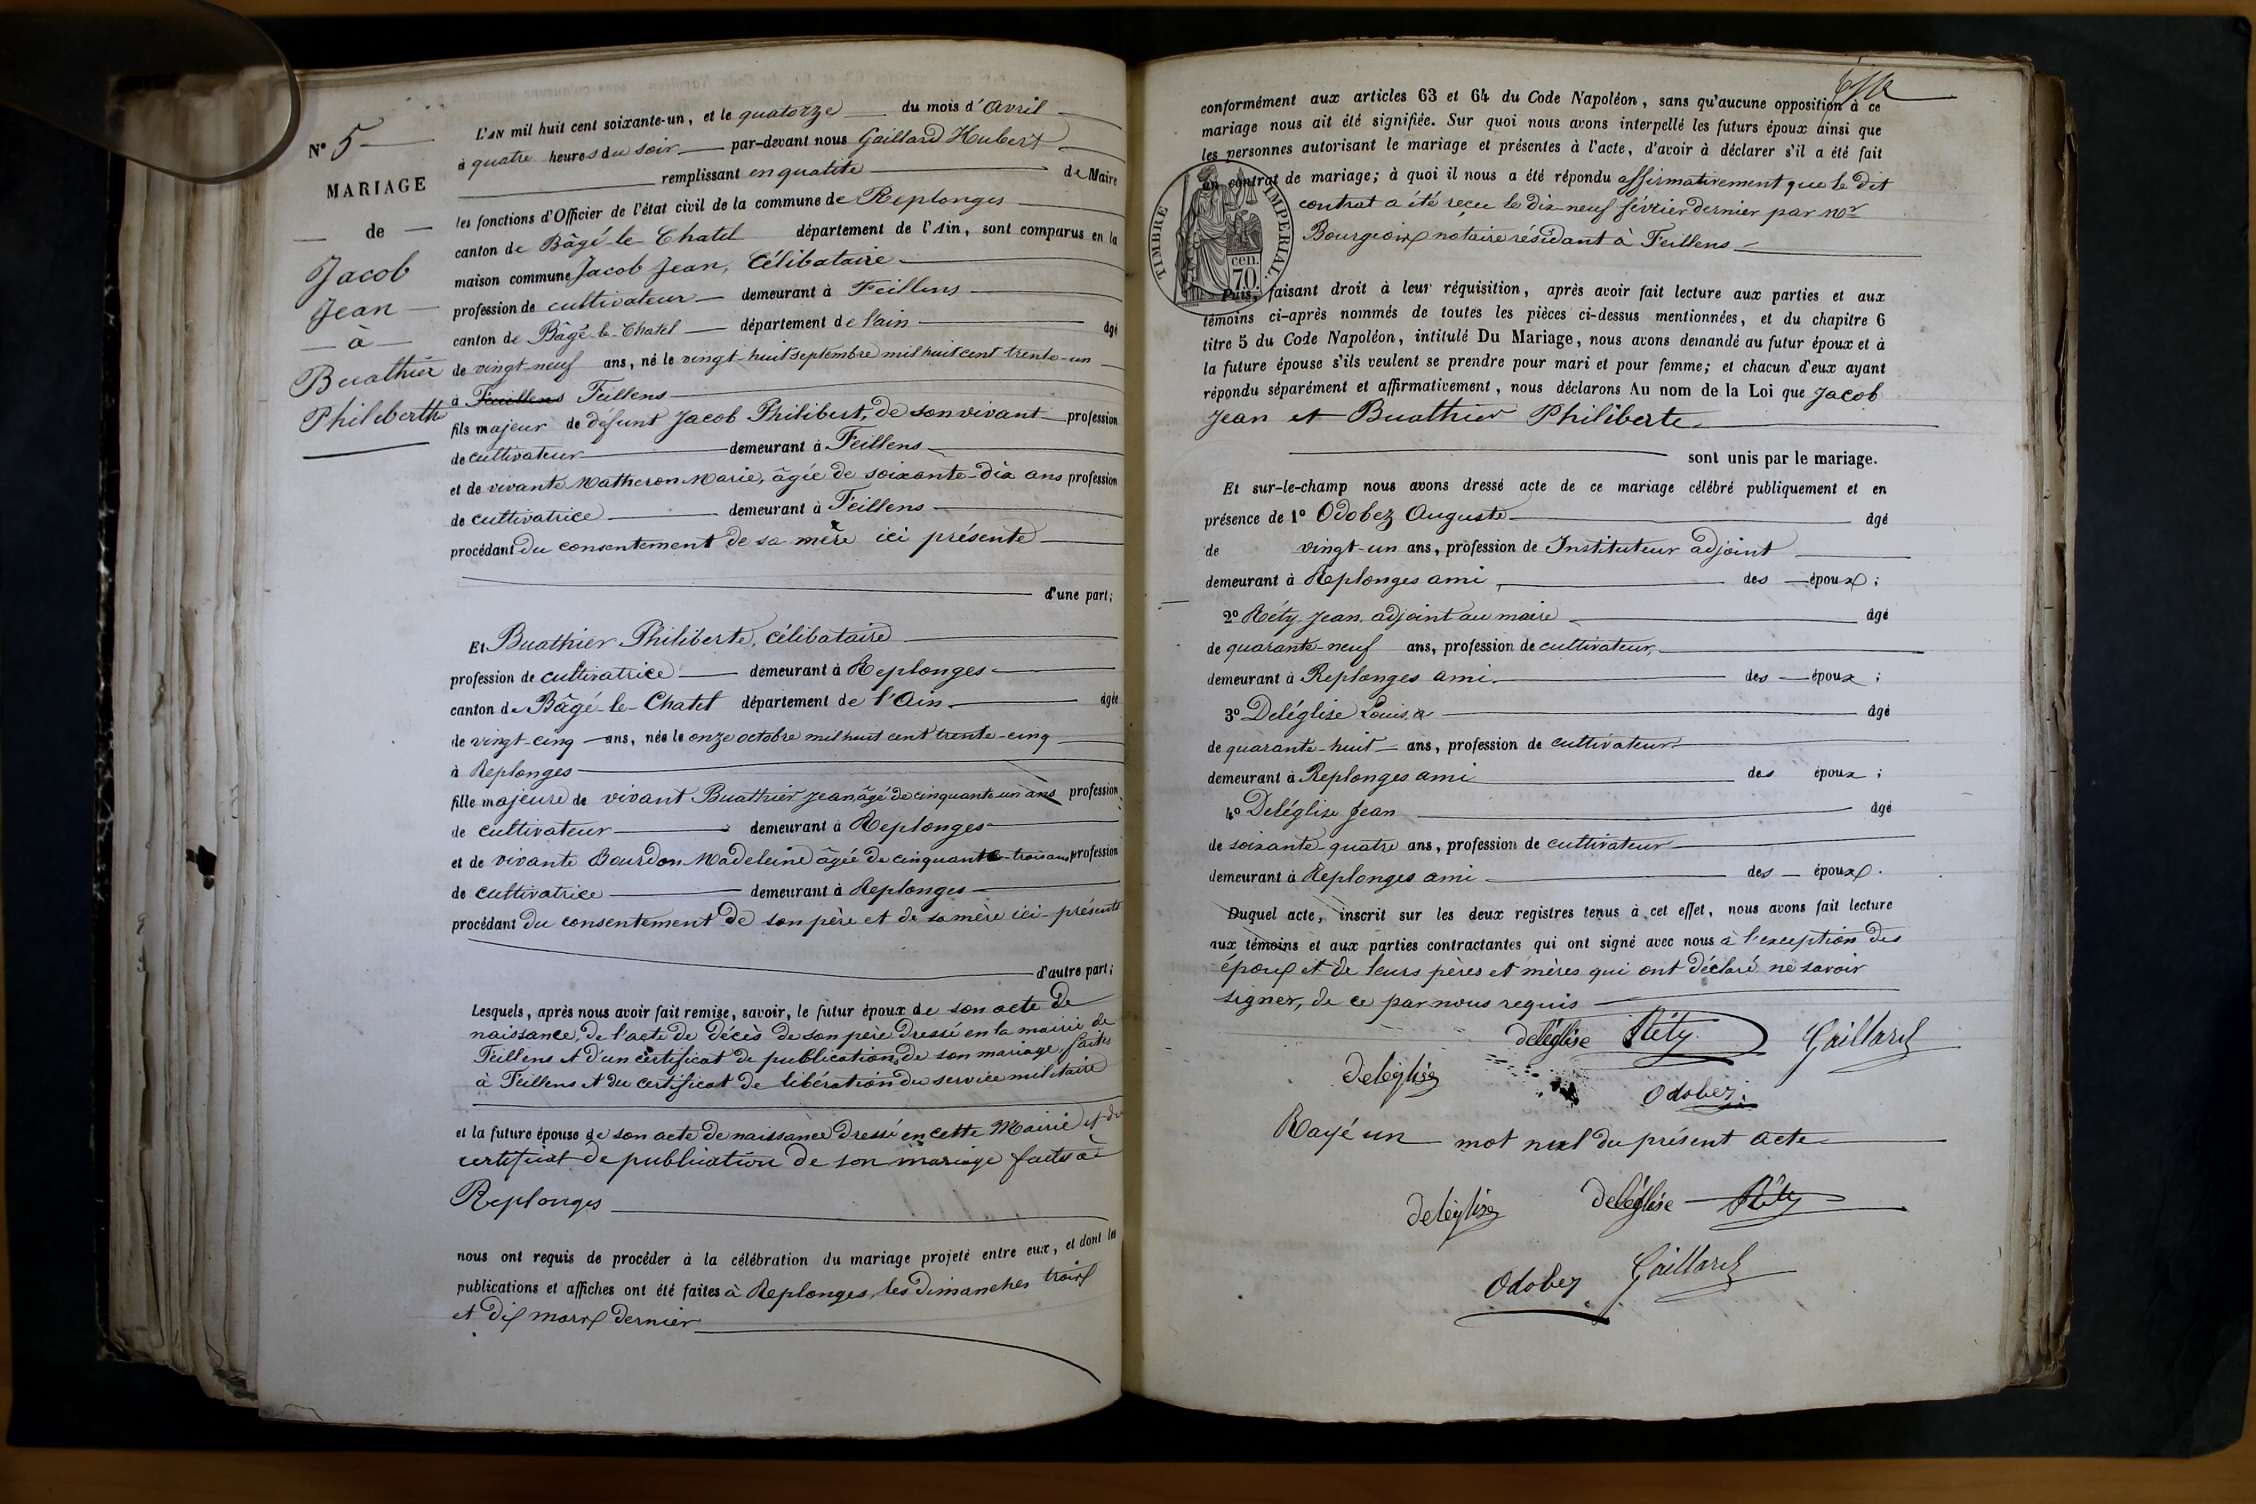 N° 5
MARIAGE
de
Jacob
Jean
à
Buathier
Philiberth
L'AN mil huit cent soixante-un, et le quatorze du mois d'Avril
à quatre heures du soir par-devant nous Gaillard Hubert
remplissant en qualité de Maire
les fonctions d'Officier de l'état civil de la commune de Replonges
canton de Bâgé-le-Chatel département de l'Ain, sont comparus en la
maison commune Jacob Jean, Célibataire
profession de cultivateur demeurant à Feillens
canton de Bâgé-le-Chatel département de l'ain âgé
de vingt-neuf ans, né le vingt-huit septembre mil huit cent trente-un
à Feillens
fils majeur de défunt Jacob Philibert, de son vivant profession
de cultivateur demeurant à Feillens
et de vivante Matheron Marie, âgée de soixante-dix ans profession
de cultivatrice demeurant à Feillens
procédant du consentement de sa mère ici présente
d'une part;
Et Buathier Philiberte, célibataire
profession de cultivatrice demeurant à Replonges
canton de Bâgé-le-Chatel département de l'Ain âgée
de vingt-cinq ans, née le onze octobre mil huit cent trente-cinq
à Replonges
fille majeure de vivant Buathier Jean âgé de cinquante un ans profession
de cultivateur demeurant à Replonges
et de vivante Bourdon Madeleine âgée de cinquante-trois ans profession
de cultivatrice demeurant à Replonges
procédant du consentement de son père et de sa mère ici-présents
d'autre part;
Lesquels, après nous avoir fait remise, savoir, le futur époux de son acte de
naissance, de l'acte de décès de son père dressé en la mairie de
Feillens et d'un certificat de publications de son mariage, faites
à Feillens et du certificat de libération du service militaire
et la future épouse de son acte de naissance dressé en cette Mairie et du
certificat de publication de son mariage faites à
Replonges
nous ont requis de procéder à la célébration du mariage projeté entre eux, et dont les
publications et affiches ont été faites à Replonges, les dimanches trois
et dix mars dernier
conformément aux articles 63 et 64 du Code Napoléon, sans qu'aucune opposition à ce
mariage nous ait été signifiée. Sur quoi nous avons interpellé les futurs époux ainsi que
les personnes autorisant le mariage et présentes à l'acte, d'avoir à déclarer s'il a été fait
un contrat de mariage; à quoi il nous a été répondu affirmativement que le dit
contrat a été reçu le dix-neuf février dernier par Mor
Bourgeoix notaire résidant à Feillens
TIMBRE IMPERIAL.
70. cen.
Puis, faisant droit à leur réquisition, après avoir fait lecture aux parties et aux
témoins ci-après nommés de toutes les pièces ci-dessus mentionnées, et du chapitre 6
titre 5 du Code Napoléon, intitulé Du Mariage, nous avons demandé au futur époux et à
la future épouse s'ils veulent se prendre pour mari et pour femme; et chacun d'eux ayant
répondu séparément et affirmativement, nous déclarons Au nom de la Loi que Jacob
Jean et Buathier Philiberte
sont unis par le mariage.
Et sur-le-champ nous avons dressé acte de ce mariage célébré publiquement et en
présence de 1° Odobez Auguste âgé
de vingt-un ans, profession de Instituteur adjoint
demeurant à Replonges ami des époux;
2° Réty Jean, adjoint au maire âgé
de quarante-neuf ans, profession de cultivateur,
demeurant à Replonges ami des époux;
3° Deléglise Louis âgé
de quarante-huit ans, profession de cultivateur
demeurant à Replonges ami des époux;
4° Deléglise Jean âgé
de soixante-quatre ans, profession de cultivateur
demeurant à Replonges ami des époux.
Duquel acte, inscrit sur les deux registres tenus à cet effet, nous avons fait lecture
aux témoins et aux parties contractantes qui ont signé avec nous à l'exception des
époux et de leurs pères et mères qui ont déclaré ne savoir
signer, de ce par nous requis
deléglise Réty Gaillard
deléglise
Odobez
Rayé un mot nul du présent acte
deléglise deléglise Réty
Odobez Gaillard